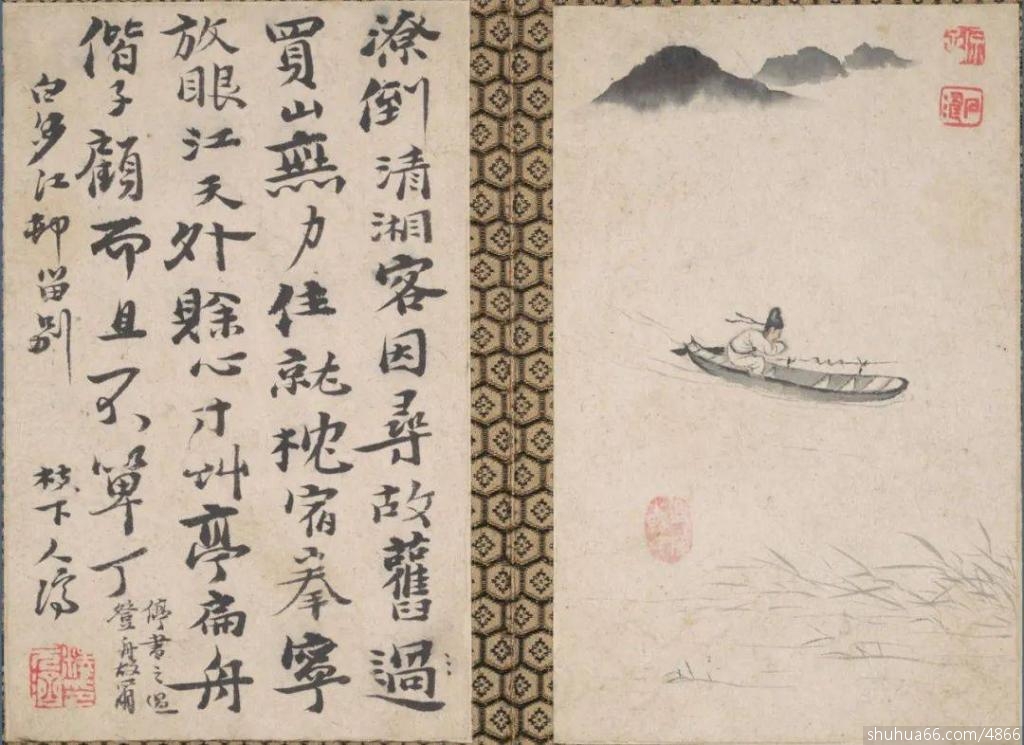 潦倒清湘客因尋故舊過
買山無力住就枕宿寧
放眼江天外賖心寸艸亭扁舟
偕子顧而且不單丁
停書之
登舟故爾
白沙江邨留別
枝下人濟
shuhua66.com/4866